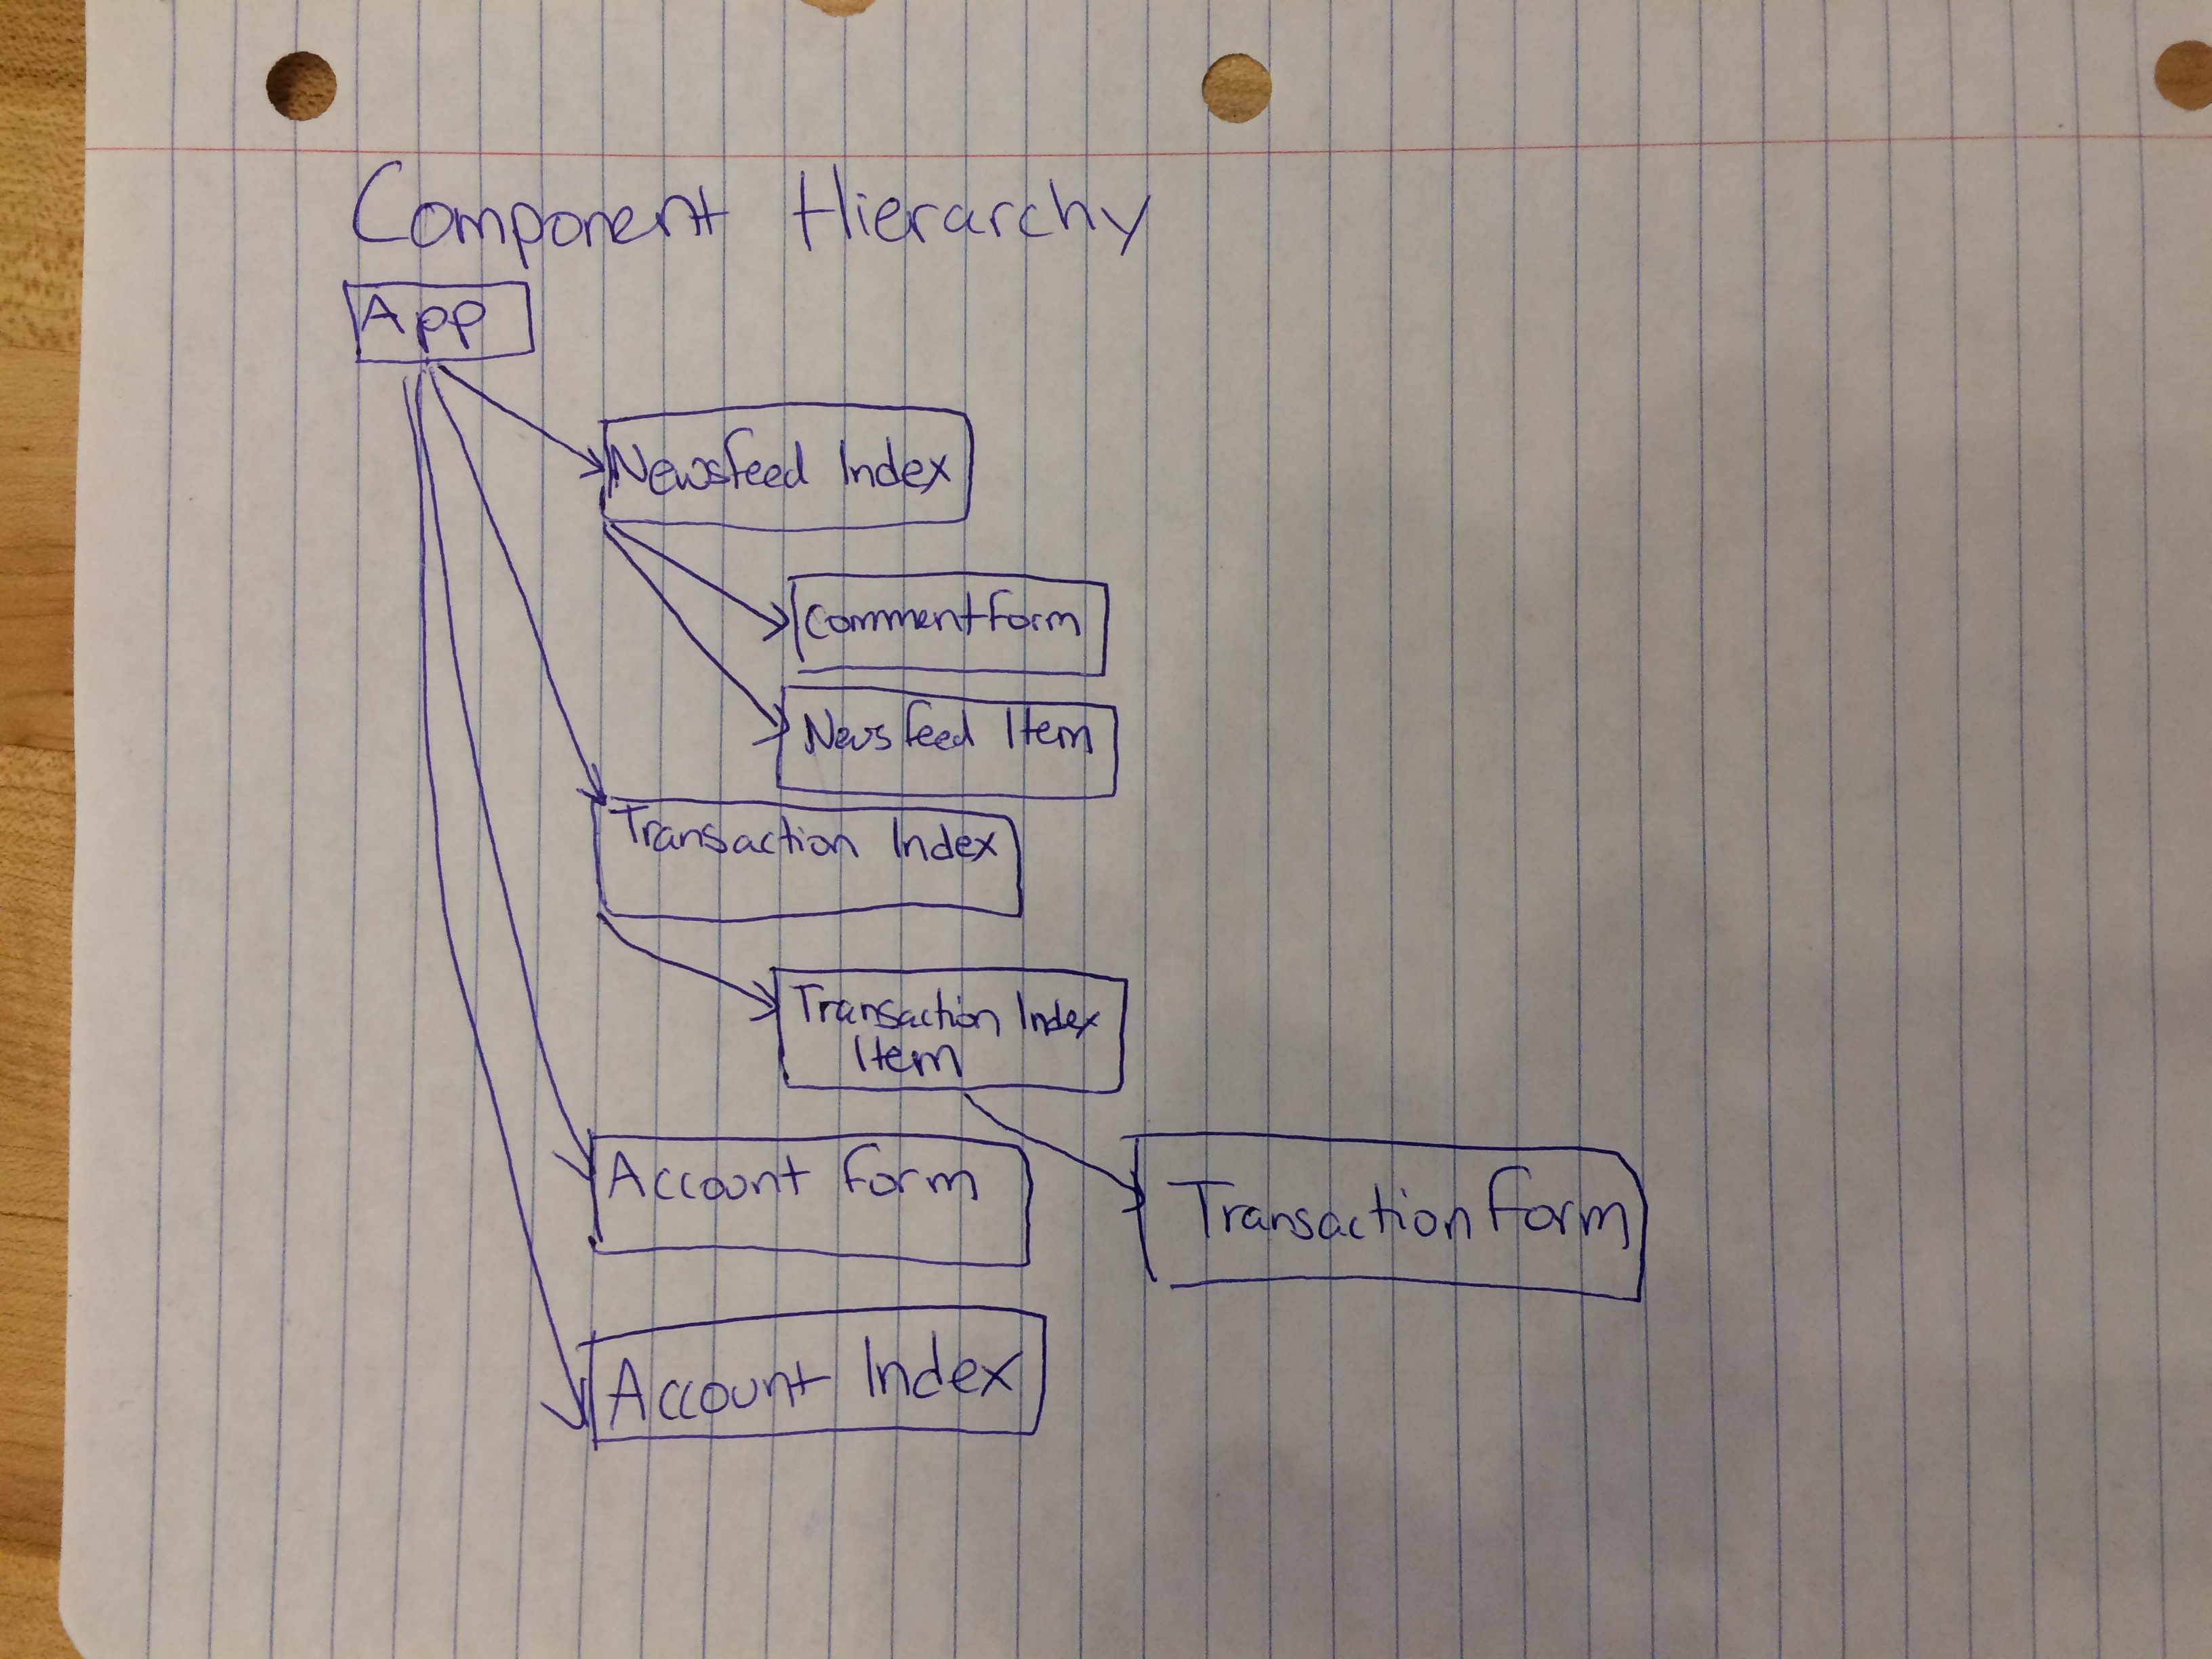 Component Hierarchy
App
Newsfeed Index
Commentform
Newsfeed Item
Transaction Index
Transaction Index
Item
Account form
Transaction form
Account Index